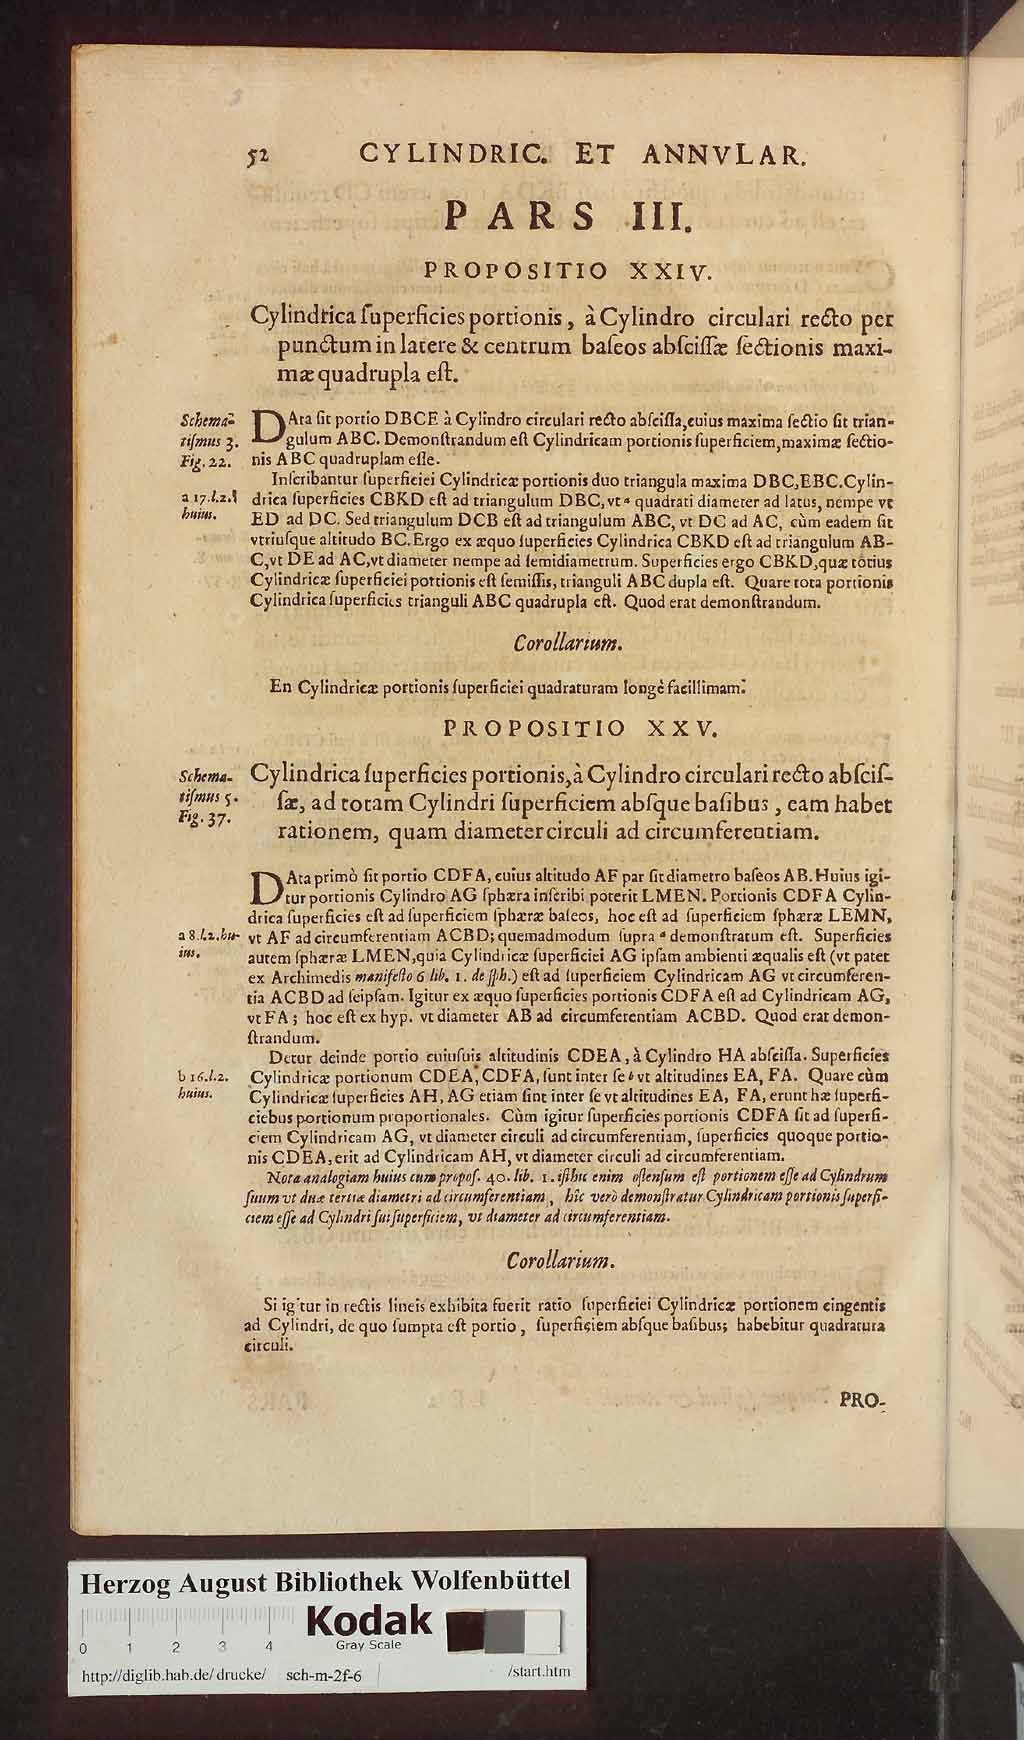 52 CYLINDRIC. ET ANNVLAR.
PARS III.
PROPOSITIO XXIV.
Cylindrica ſuperficies portionis, à Cylindro circulari recto per
punctum in latere & centrum baſeos abſciſſæ ſectionis maxi-
mæ quadrupla eſt.
Schema-
tiſmus 3.
Fig. 22.
DAta ſit portio DBCE à Cylindro circulari recto abſciſſa, cuius maxima ſectio ſit trian-
gulum ABC. Demonſtrandum eſt Cylindricam portionis ſuperficiem, maximæ ſectio-
nis ABC quadruplam eſſe.
Inſcribantur ſuperficiei Cylindricæ portionis duo triangula maxima DBC, EBC. Cylin-
a 17. l. 2.
huius.
drica ſuperficies CBKD eſt ad triangulum DBC, vt a quadrati diameter ad latus, nempe vt
ED ad DC. Sed triangulum DCB eſt ad triangulum ABC, vt DC ad AC, cùm eadem ſit
vtriuſque altitudo BC. Ergo ex æquo ſuperficies Cylindrica CBKD eſt ad triangulum AB-
C, vt DE ad AC, vt diameter nempe ad ſemidiametrum. Superficies ergo CBKD, quæ totius
Cylindricæ ſuperficiei portionis eſt ſemiſſis, trianguli ABC dupla eſt. Quare tota portionis
Cylindrica ſuperficies trianguli ABC quadrupla eſt. Quod erat demonſtrandum.
Corollarium.
En Cylindricæ portionis ſuperficiei quadraturam longè facillimam.
PROPOSITIO XXV.
Schema-
tiſmus 5.
Fig. 37.
Cylindrica ſuperficies portionis, à Cylindro circulari recto abſciſ-
ſæ, ad totam Cylindri ſuperficiem abſque baſibus, eam habet
rationem, quam diameter circuli ad circumferentiam.
DAta primò ſit portio CDFA, cuius altitudo AF par ſit diametro baſeos AB. Huius igi-
tur portionis Cylindro AG ſphæra inſcribi poterit LMEN. Portionis CDFA Cylin-
drica ſuperficies eſt ad ſuperficiem ſphæræ baſeos, hoc eſt ad ſuperficiem ſphæræ LEMN,
a 8. l. 2. hu-
ius.
vt AF ad circumferentiam ACBD; quemadmodum ſupra a demonſtratum eſt. Superficies
autem ſphæræ LMEN, quia Cylindricæ ſuperficiei AG ipſam ambienti æqualis eſt (vt patet
ex Archimedis manifeſto 6 lib. 1. de ſph.) eſt ad ſuperficiem Cylindricam AG vt circumferen-
tia ACBD ad ſeipſam. Igitur ex æquo ſuperficies portionis CDFA eſt ad Cylindricam AG,
vt FA; hoc eſt ex hyp. vt diameter AB ad circumferentiam ACBD. Quod erat demon-
ſtrandum.
Detur deinde portio cuiuſuis altitudinis CDEA, à Cylindro HA abſciſſa. Superficies
b 16. l. 2.
huius.
Cylindricæ portionum CDEA, CDFA, ſunt inter ſe b vt altitudines EA, FA. Quare cùm
Cylindricæ ſuperficies AH, AG etiam ſint inter ſe vt altitudines EA, FA, erunt hæ ſuperfi-
ciebus portionum proportionales. Cùm igitur ſuperficies portionis CDFA ſit ad ſuperfi-
ciem Cylindricam AG, vt diameter circuli ad circumferentiam, ſuperficies quoque portio-
nis CDEA, erit ad Cylindricam AH, vt diameter circuli ad circumferentiam.
Nota analogiam huius cum propoſ. 40. lib. 1. iſthic enim oſtenſum eſt portionem eſſe ad Cylindrum
ſuum vt duæ tertiæ diametri ad circumferentiam, hîc verò demonſtratur Cylindricam portionis ſuperfi-
ciem eſſe ad Cylindri ſui ſuperficiem, vt diameter ad circumferentiam.
Corollarium.
Si igitur in rectis lineis exhibita fuerit ratio ſuperficiei Cylindricæ portionem cingentis
ad Cylindri, de quo ſumpta eſt portio, ſuperficiem abſque baſibus; habebitur quadratura
circuli.
PRO-
Herzog August Bibliothek Wolfenbüttel
Kodak
Gray Scale
0 1 2 3 4
http://diglib.hab.de/drucke/ sch-m-2f-6 /start.htm